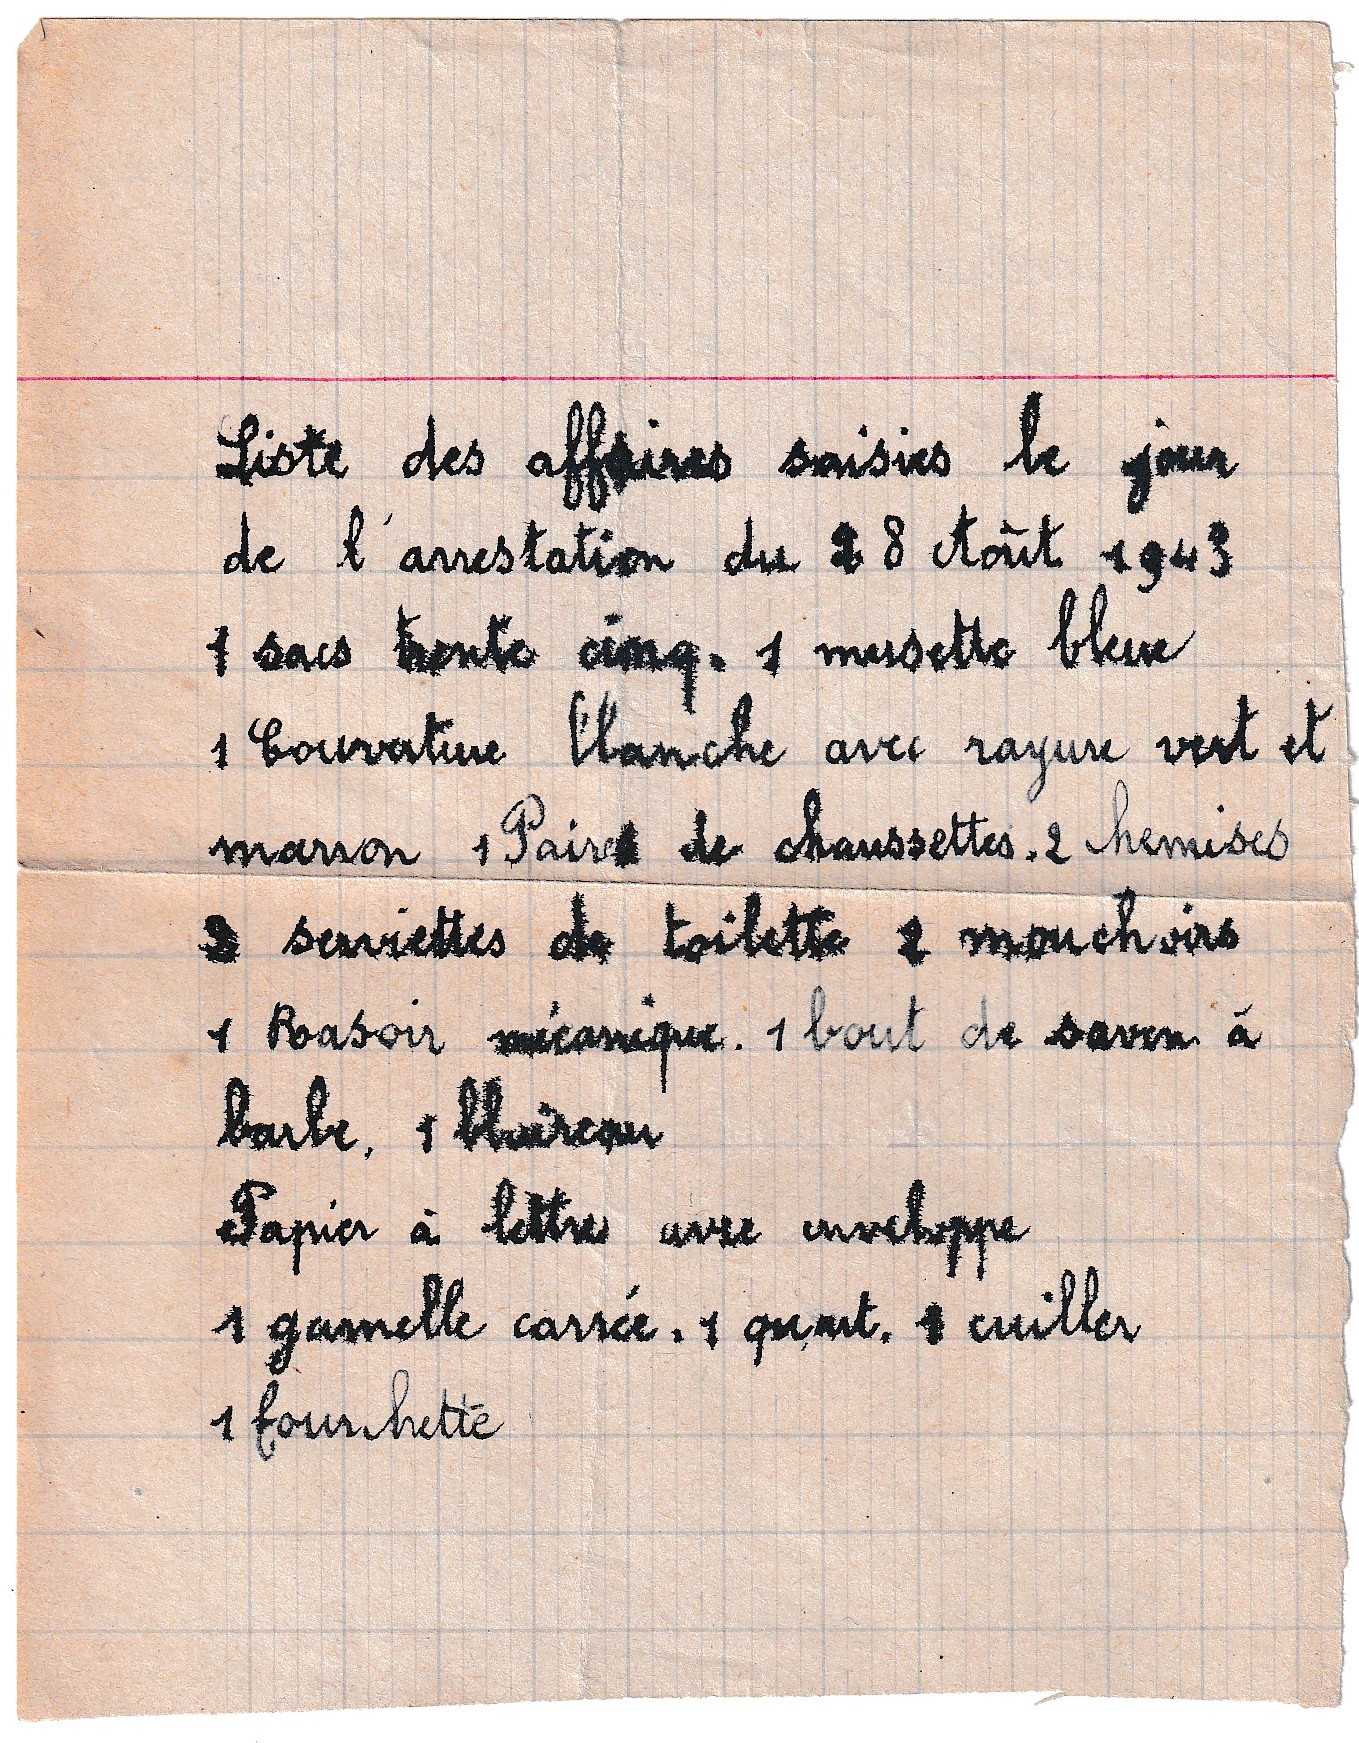 Liste des affaires saisies le jour
de l'arrestation du 28 Août 1943
1 sacs trente cinq. 1 musette bleue
1 Couvature blanche avec rayure vert et
marron 1 Paire de chaussettes. 2 chemises
2 serviettes de toilette 2 mouchoirs
1 Rasoir mécanique. 1 bout de savon à
barbe. 1 blaireau
Papier à lettre avec enveloppe
1 gamelle carrée. 1 quart. 1 cuiller
1 fourchette